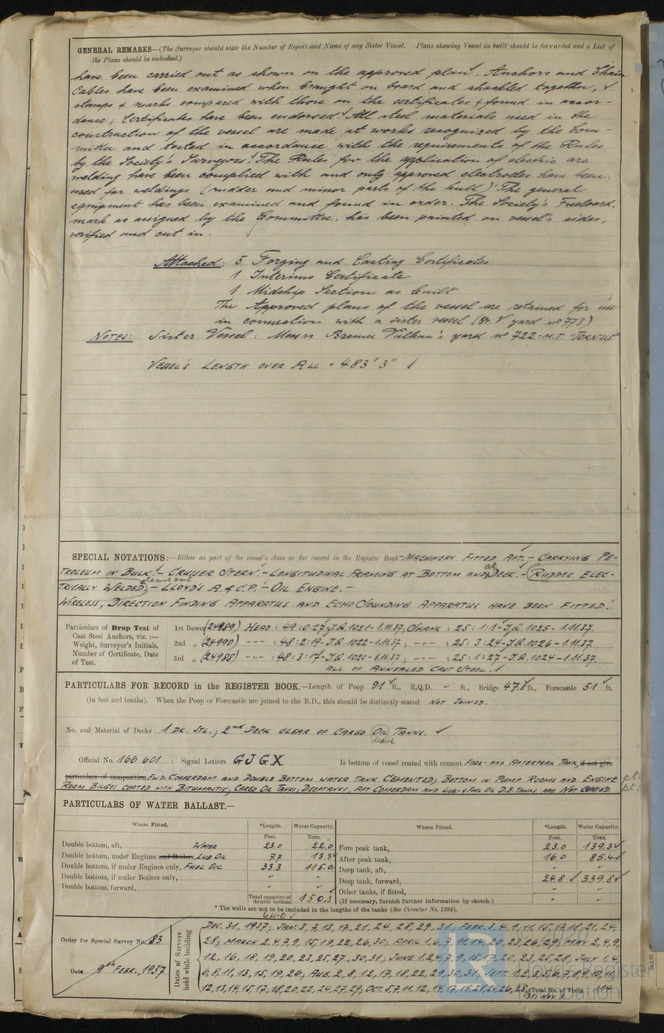 GENERAL REMARKS—(The Surveyor should state the Number of Report and Name of any Sister Vessel. Plans showing Vessel as built should be forwarded and a List of
the Plans should be embodied.)
have been carried out as shown on the approved plan. Anchors and Chain
Cables have been examined when brought on board and shackled together,
stamps & marks compared with those on the certificates & found in accor-
dance; Certificates have been endorsed. All steel materials used in the
construction of the vessel are made at works recognized by the Com-
mittee and tested in accordance with the requirements of the Rules
by the Society's Surveyor. The Rules for the application of electric arc
welding have been complied with and only approved electrodes have been
used for weldings (rudder and minor parts of the hull). The general
equipment has been examined and found in order. The Society's Freeboard,
mark as assigned by the Committee, has been painted on vessel's sides,
verified and cut in.
Attached: 5 Forging and Casting Certificates
1 Interims Certificate
1 Midship Section as built
The Approved plans of the vessel are retained for use
in connection with a sister vessel (Br. V. yard no 773)
NOTES: Sister Vessel: Messrs Bremer Vulkan's yard no 722 - M.T. "TORNUS"
VESSEL'S LENGTH OVER ALL = 483' 3"
SPECIAL NOTATIONS:—Either as part of the vessel's class or for record in the Register Book MACHINERY FITTED AFT. - CARRYING PE-
TROLEUM IN BULK. - CRUISER STERN. - LONGITUDINAL FRAMING AT BOTTOM AND AT DECK. - RUDDER ELEC-
TRICALLY WELDED, - LLOYD'S A. & C.P. - OIL ENGINE. -
WIRELESS, DIRECTION FINDING APPARATUS AND ECHO SOUNDING APPARATUS HAVE BEEN FITTED.
Particulars of Drop Test of
Cast Steel Anchors, viz. :—
Weight, Surveyor's Initials,
Number of Certificate, Date
of Test.
1st Bower (24989) HEAD: 49:0:27-J.R.1021-1.11.37, SHANK: 25:1:1-J.R.1025-1.11.37.
2nd „ (24990) -"- : 48:2:19-J.R.1022-1.11.37; -"- : 25:3:24-J.R.1026-1.11.37
3rd „ (24988) -"- : 48:3:17-J.R.1020-1.11.37, -"- : 25:1:27-J.R.1024-1.11.37.
ALL OF ANNEALED CAST STEEL.
PARTICULARS FOR RECORD in the REGISTER BOOK.—Length of Poop 91 ft., R.Q.D. - ft., Bridge 47.5 ft., Forecastle 51 ft.
(in feet and tenths). When the Poop or Forecastle are joined to the B.D., this should be distinctly stated NOT JOINED.
No. and Material of Decks 1 DK. STL.; 2nd DECK CLEAR OF CARGO OIL TANKS.
Official No. 166 601 ; Signal Letters GJGX Is bottom of vessel coated with cement FORE- AND AFTERPEAK TANK, if not give
particulars of composition FWD. COFFERDAM AND DOUBLE BOTTOM WATER TANK CEMENTED; BOTTOM IN PUMP ROOMS AND ENGINE
ROOM BILGES COATED WITH BITUMASTIC, CARGO OIL TANKS, DEEPTANKS, AFT COFFERDAM AND LUB- & FUEL OIL D.B. TANKS ARE NOT COATED.
PARTICULARS OF WATER BALLAST.—
Where Fitted. *Length. Water Capacity. Where Fitted. *Length. Water Capacity.
Feet. Tons. Feet. Tons.
Double bottom, aft, WATER 23.0 22.0 Fore peak tank, 23.0 139.3
Double bottom, under Engines and Boilers, LUB OIL 7.7 13.3 After peak tank, 16.0 85.4
Double bottom, if under Engines only, FUEL OIL 33.3 115.0 Deep tank, aft,
Double bottom, if under Boilers only, Deep tank, forward, 24.8 339.8
Double bottom, forward, Other tanks, if fitted,
Total capacity of double bottom 150.3 (If necessary, furnish further information by sketch.)
* The walls are not to be included in the lengths of the tanks (See Circular No. 1284).
64.0
Order for Special Survey No. 83
Date 9th FEBR., 1937
Dates of Surveys held while building
DEC. 31, 1937, JAN. 3, 7, 13, 17, 21, 24, 28, 29, 31
28; MARCH 2, 4, 7, 9, 15, 19, 22, 26, 30
Total No. of Visits 114